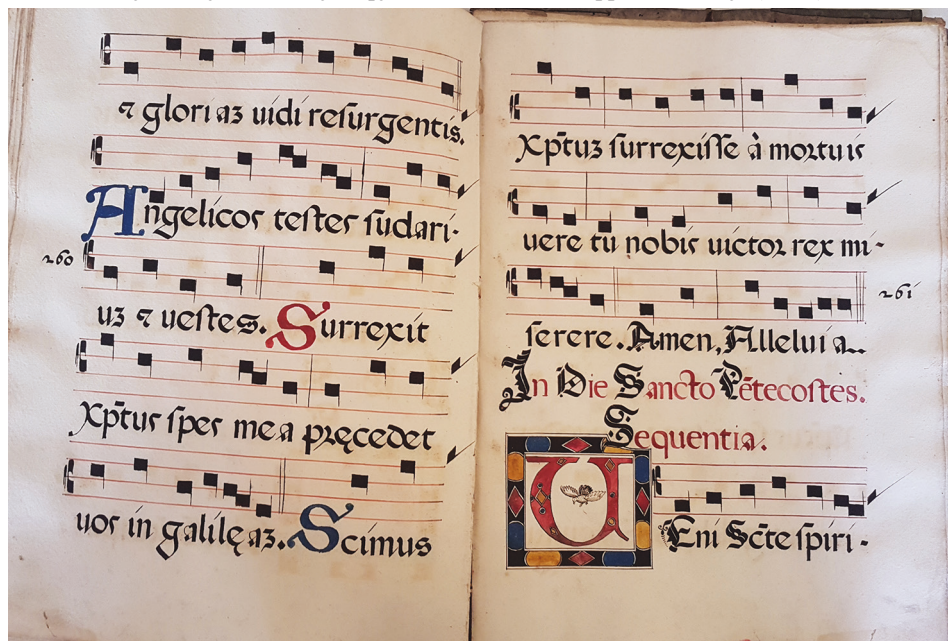 ⁊ gloriaꝫ uidi reſurgentis.
Angelicos teſtes ſudari-
260
uꝫ ⁊ ueſtes. Surrexit
Xp̃tus ſpes mea pręcedet
uos in galilęaꝫ. Scimus
Xp̃tuꝫ ſurrexiſſe à moꝛtuis
uere tu nobis uictoꝛ rex mi-
261
ſerere. Amen, Allelui a..
In Die Sancto Pẽtecoſtes.
Sequentia.
VEni Sc̃te ſpiri-